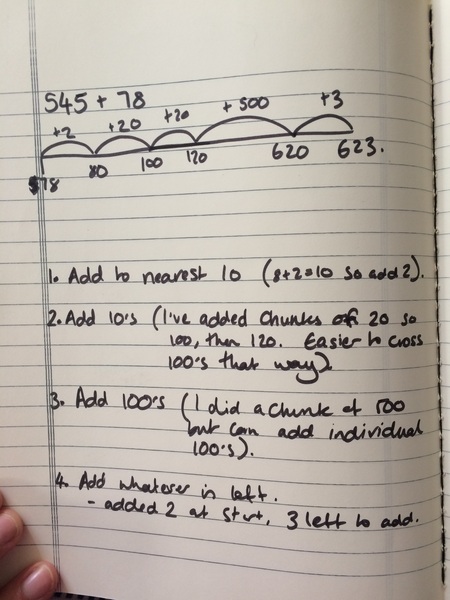 545 + 78
+2 +20 +20 +500 +3
78 80 100 120 620 623.
1. Add to nearest 10 (8+2=10 so add 2).
2. Add 10's (I've added chunks of 20 so
100, then 120. Easier to cross
100's that way).
3. Add 100's (I did a chunk of 500
but can add individual
100's).
4. Add whatever is left.
- added 2 at start, 3 left to add.